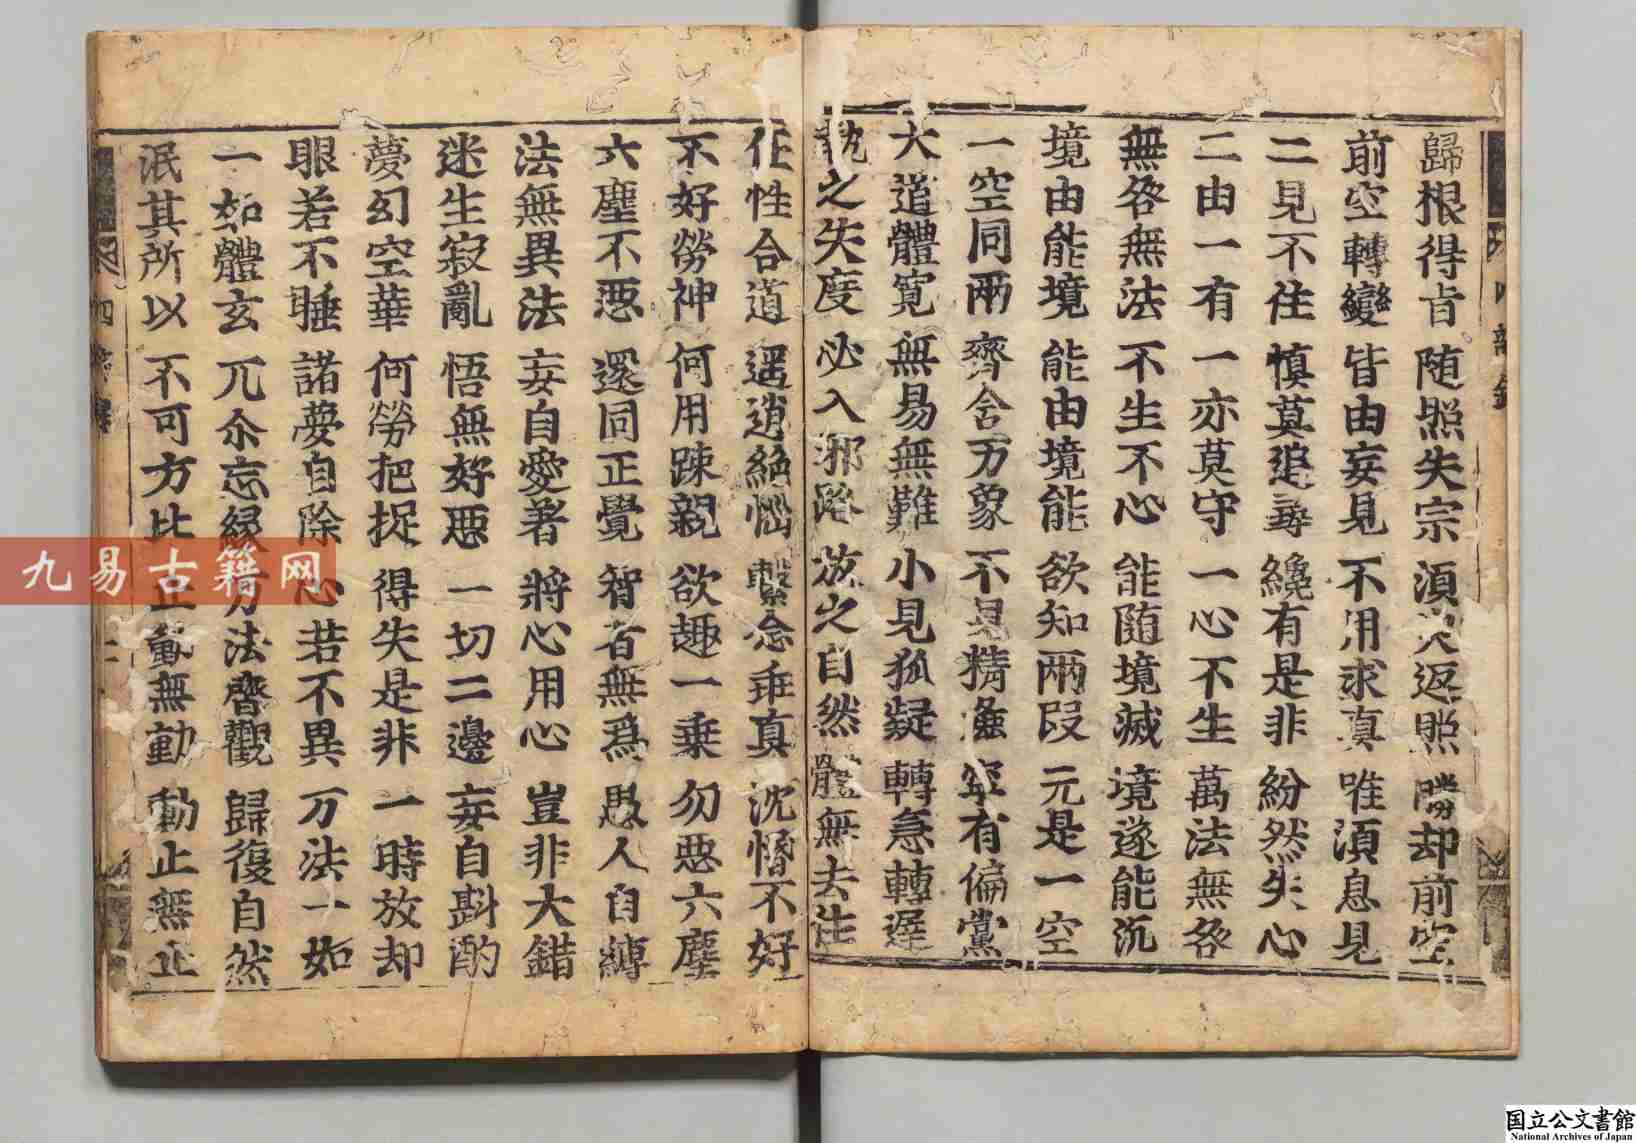 歸根得旨 随照失宗 須臾返照 勝却前空
前空轉變 皆由妄見 不用求真 唯須息見
二見不住 慎莫追尋 纔有是非 紛然失心
二由一有 一亦莫守 一心不生 萬法無咎
無咎無法 不生不心 能随境滅 境逐能沉
境由能境 能由境能 欲知兩段 元是一空
一空同兩 齊含万象 不見精麁 寧有偏黨
大道體寬 無易無難 小見狐疑 轉急轉遲
執之失度 必入邪路 放之自然 體無去住
任性合道 逍遥絶惱 繫念乖真 沈惛不好
不好勞神 何用踈親 欲趣一乗 勿惡六塵
六塵不惡 還同正覺 智者無爲 愚人自縛
法無異法 妄自愛著 將心用心 豈非大錯
迷生寂亂 悟無好惡 一切二邊 妄自斟酌
夢幻空華 何勞把捉 得失是非 一時放却
眼若不睡 諸夢自除 心若不異 万法一如
一如體玄 兀尒忘縁 万法齊觀 歸復自然
泯其所以 不可方比 止動無動 動止無止
四
九易古籍网
国立公文書館
National Archives of Japan